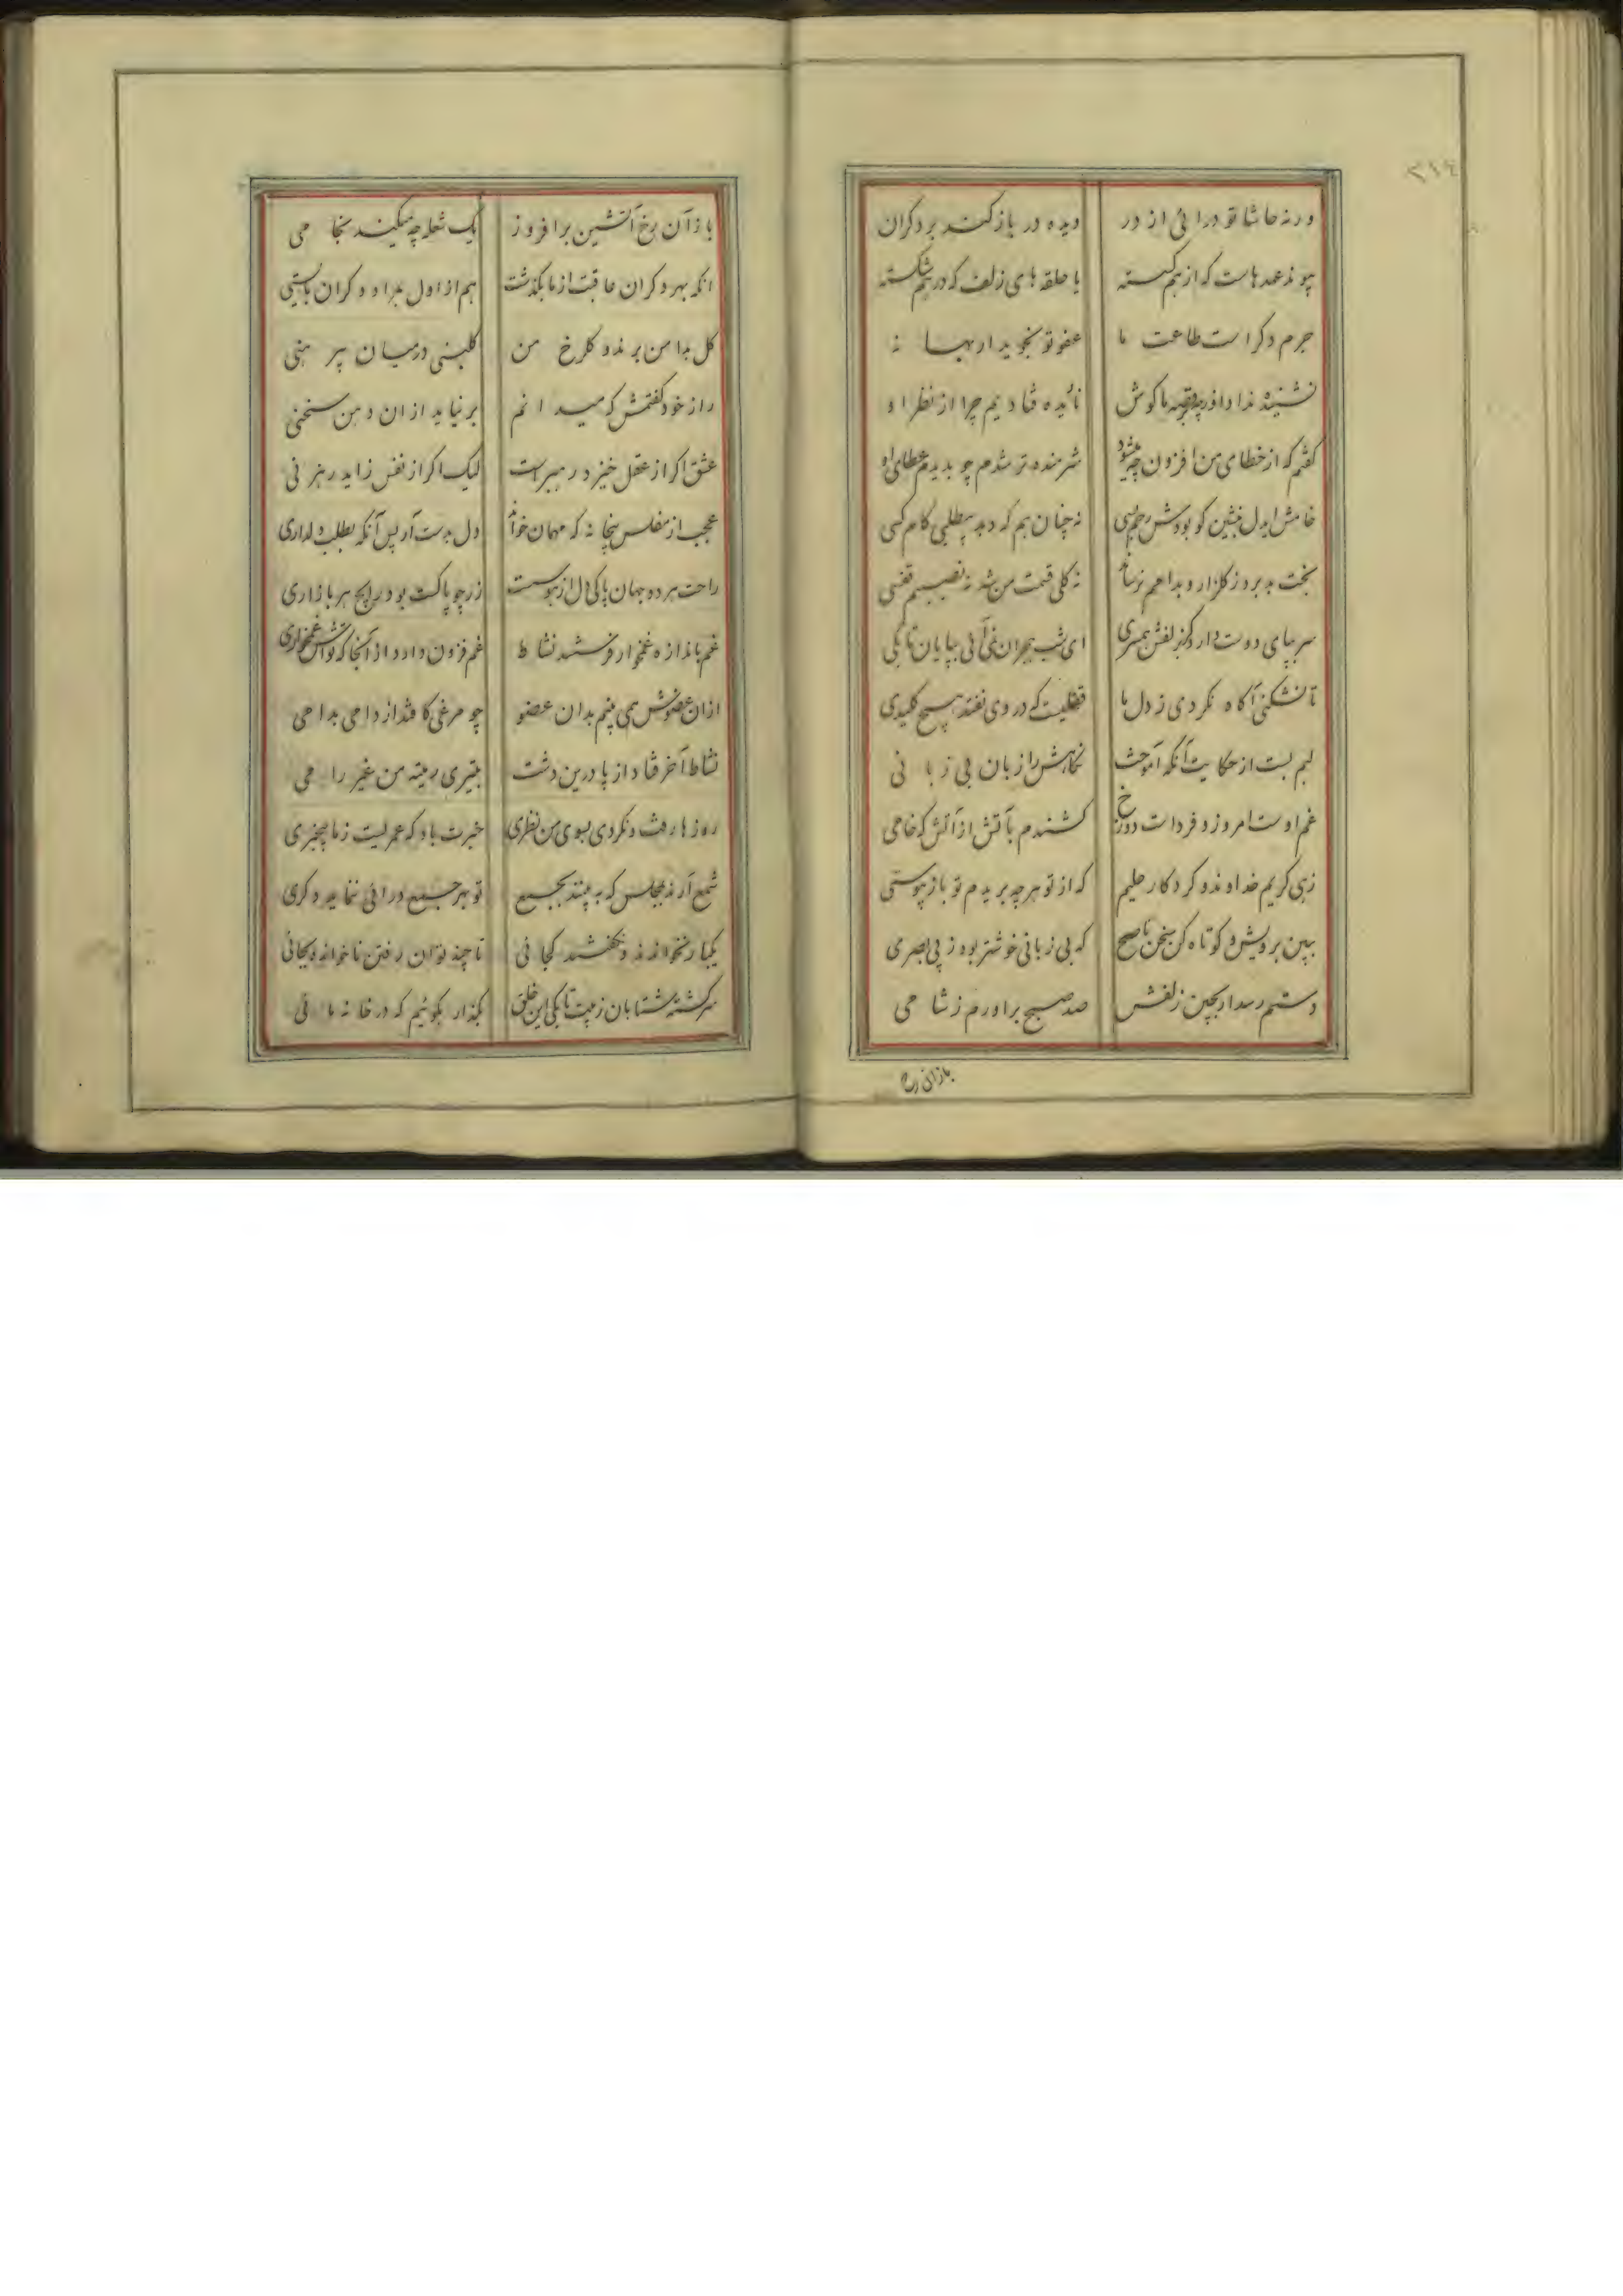 ورنه حاشا تو درائی از در
دیده در باز کنند بر دکران
پیوند عهدهاست که از هم کسسته
یا حلقه های زلف که در هم شکسته
جرم دکر است طاعت ما
عفو تو نجوید ار بهانه
کوش
نادیده فتادیم چرا از نظر او
کفتم که از خطای من افزون چه میشود
شرمنده تر شدم چو بدیدم عطای او
خامش ایدل بنشین کو بودش رحم بسی
نه چنان هم که دهد بیطلبی کام کسی
بخت بد برد ز کلزار و بدامم نرساند
نه کلی قسمت من شد نه نصیبم قفسی
سر بپای دوست دارد کز لفش همسری
ای شب هجران نمی آئی بپایان تا بکی
تا نشکنی آکاه نکردی ز دل ما
قفلیست که در وی نفتد هیچ کلیدی
لبم بست از حکایت آنکه آموخت
نکاهش را زبان بی زبانی
غم اوست امروز و فردات دوزخ
کشندم بآتش از آتش که خامی
زهی کریم خداوند و کردکار حلیم
که از تو هرچه بریدم تو باز پیوستی
ببین برویش و کوتاه کن سخن ناصح
که بی زبانی خوشتر بود ز بی بصری
دستم رسد ار بچین زلفش
صد صبح براورم ز شامی
باز آن رخ
باز آن رخ آتشین برافروز
یک شعله چه میکند بخامی
انکه بهر دکران عاقبت از ما بکذشت
هم از اول بمراد دکران بایستی
کل بدامن برند و کلرخ من
کلبنی درمیان پیرهنی
راز خود کفتمش که میدانم
برنیاید از ان دهن سخنی
عشق اکر از عقل خیزد رهبر است
لیک اکر از نفس زاید رهزنی
عجب از مفلس بیخانه که مهمان خواند
دل بدست آر پس آنکه بطلب دلداری
راحت هر دو جهان پاکی دل از هوس است
زر چو پاکست بود رایج هر بازاری
غم باندازه غمخوار فرستند نشاط
غم فزون دارد از آنجا که تواش غمخواری
ازان عضوش همی بینم بدان عضو
چو مرغی کافتد از دامی بدامی
نشاط آخر فتاد از پا درین دشت
بتیری رمیته من غیر رامی
روزها رفت و نکردی بسوی من نظری
خبرت باد که عمریست ز ما بیخبری
شمع آرند بمجلس که به بینند بجمع
تو بهر جمع درائی ننماید دکری
یکبار نخواندند و نکفتند کجائی
تا چند توان رفتن ناخوانده بجائی
سرکشته شتابان ز پیت تا بکی این خلق
بکذار بکوئیم که در خانه مائی